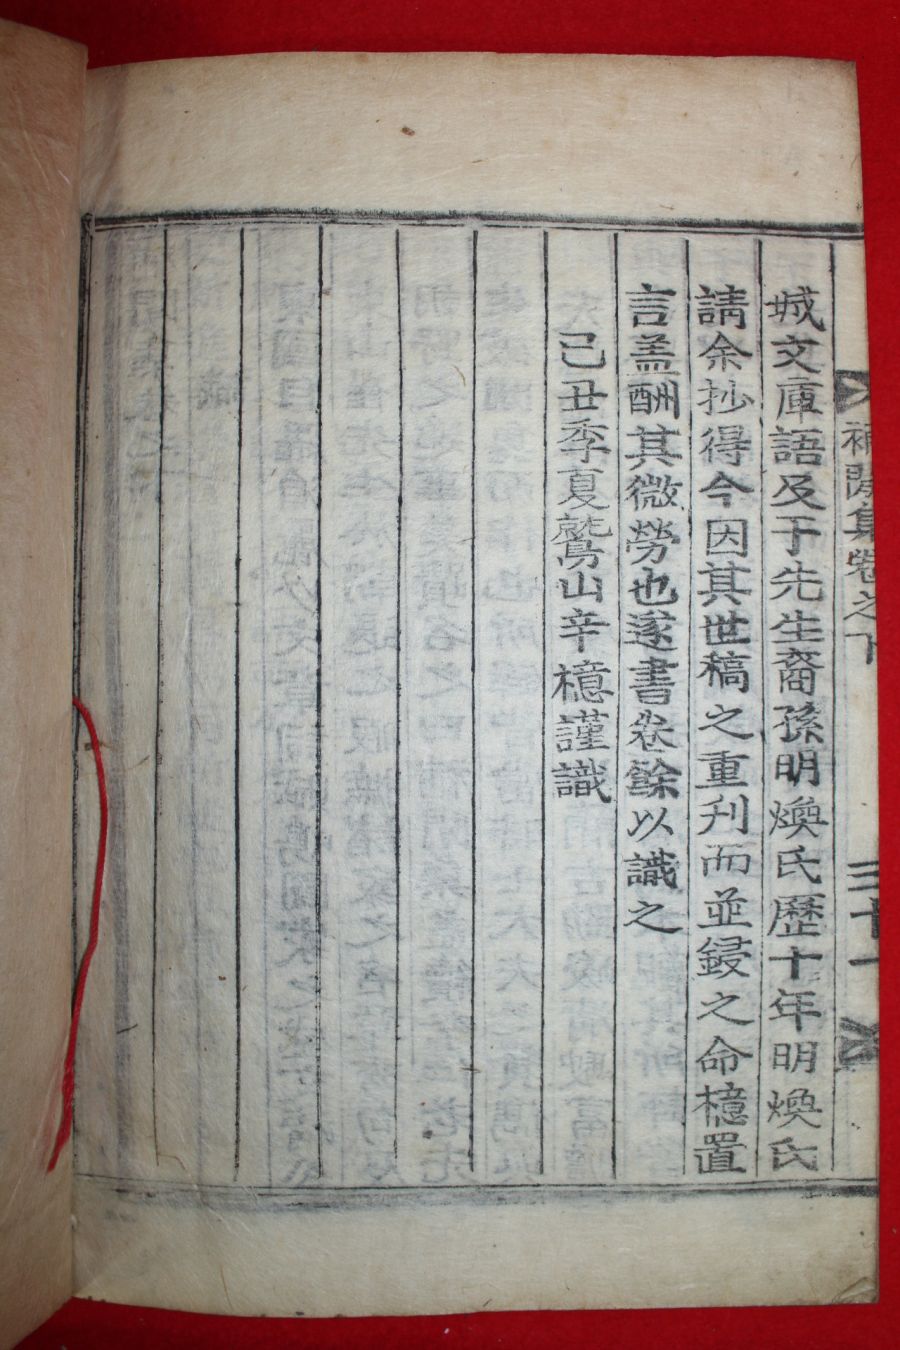 補閑集卷之下
三十一
城文庫語及于先生裔孫明煥氏歷十年明煥氏
請余抄得今因其世稿之重刊而並鋟之命檍置
言盖酬其微勞也遂書卷餘以識之
己丑季夏鷲山辛檍謹識